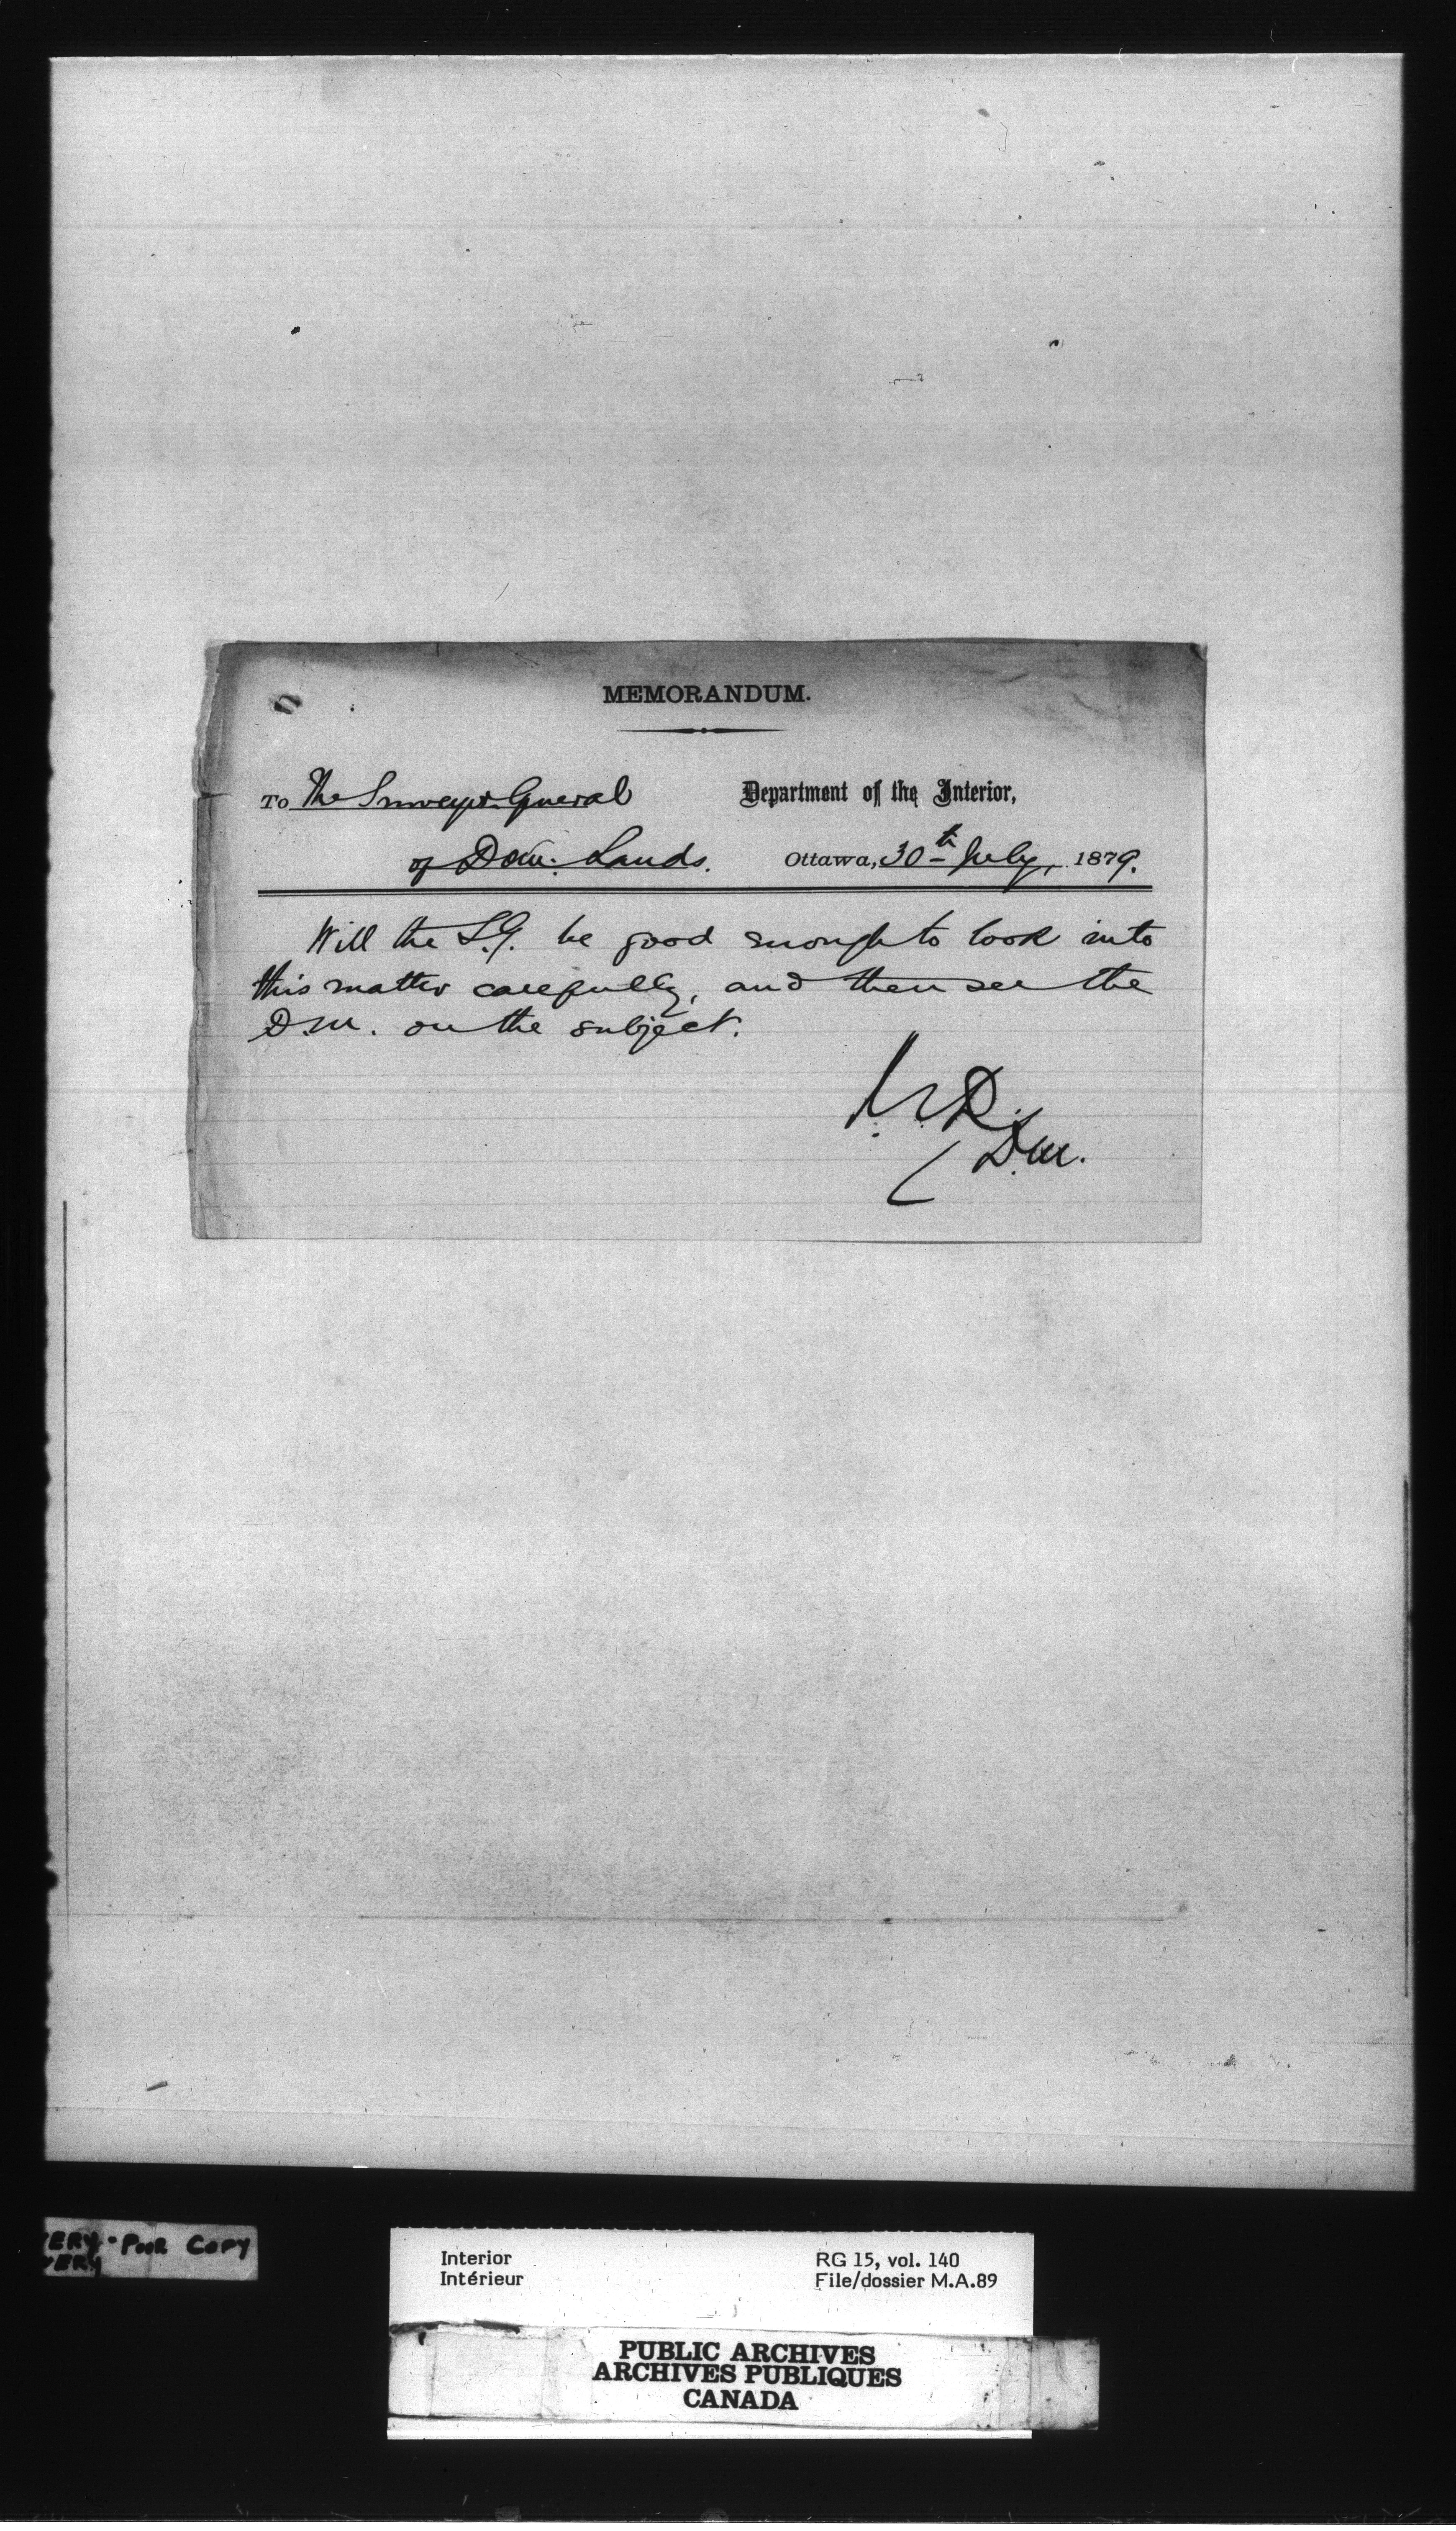 MEMORANDUM.
To The Surveyor General
Department of the Interior,
of Dom. Lands.
Ottawa, 30th July, 1879.
Will the S.G. be good enough to look into
this matter carefully, and then see the
D.M. on the subject.
D.M.
VERY POOR COPY
VERY
Interior
Intérieur
RG 15, vol. 140
File/dossier M.A.89
PUBLIC ARCHIVES
ARCHIVES PUBLIQUES
CANADA